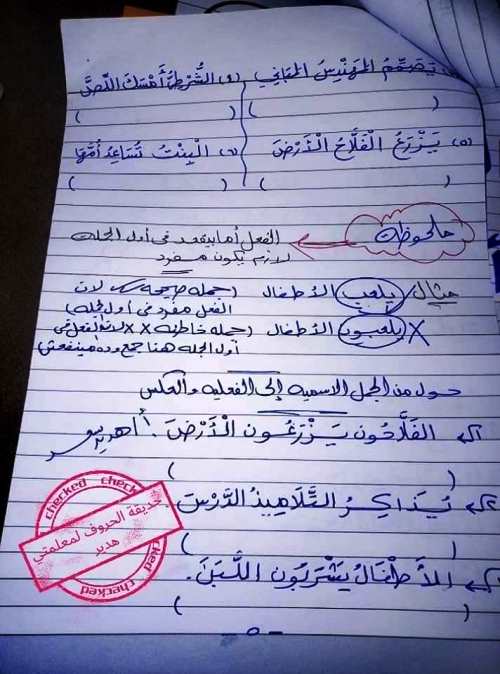 يُصَمِّمُ المُهَنْدِسُ المَبَانِي
(٤) الشُّرْطِيُّ أَمْسَكَ اللِّصَّ
( )
( )
(٥) يَزْرَعُ الْفَلَّاحُ الْأَرْضَ
(٦) الْبِنْتُ تُسَاعِدُ أُمَّهَا
( )
( )
ملحوظة
الفعل أما بيقعد فى أول الجملة
لازم يكون مفرد
مثال/ يلعب الأطفال (جملة صحيحة لان
الفعل مفرد فى أول الجملة)
X يلعبون الأطفال (جملة خاطئة xx لان الفعل فى
أول الجملة هنا جمع وده مينفعش)
حول من الجمل الاسمية إلى الفعلية والعكس
الفَلَّاحُون يَزْرَعُون الْأَرْضَ.
( )
يُذَاكِرُ التَّلَامِيذُ الدَّرْسَ
( )
الأَطْفَالُ يَشْرَبُون اللَّبَنَ.
( )
checked
حديقة الحروف لمعلمتي
هدير
checked
- ٥ -